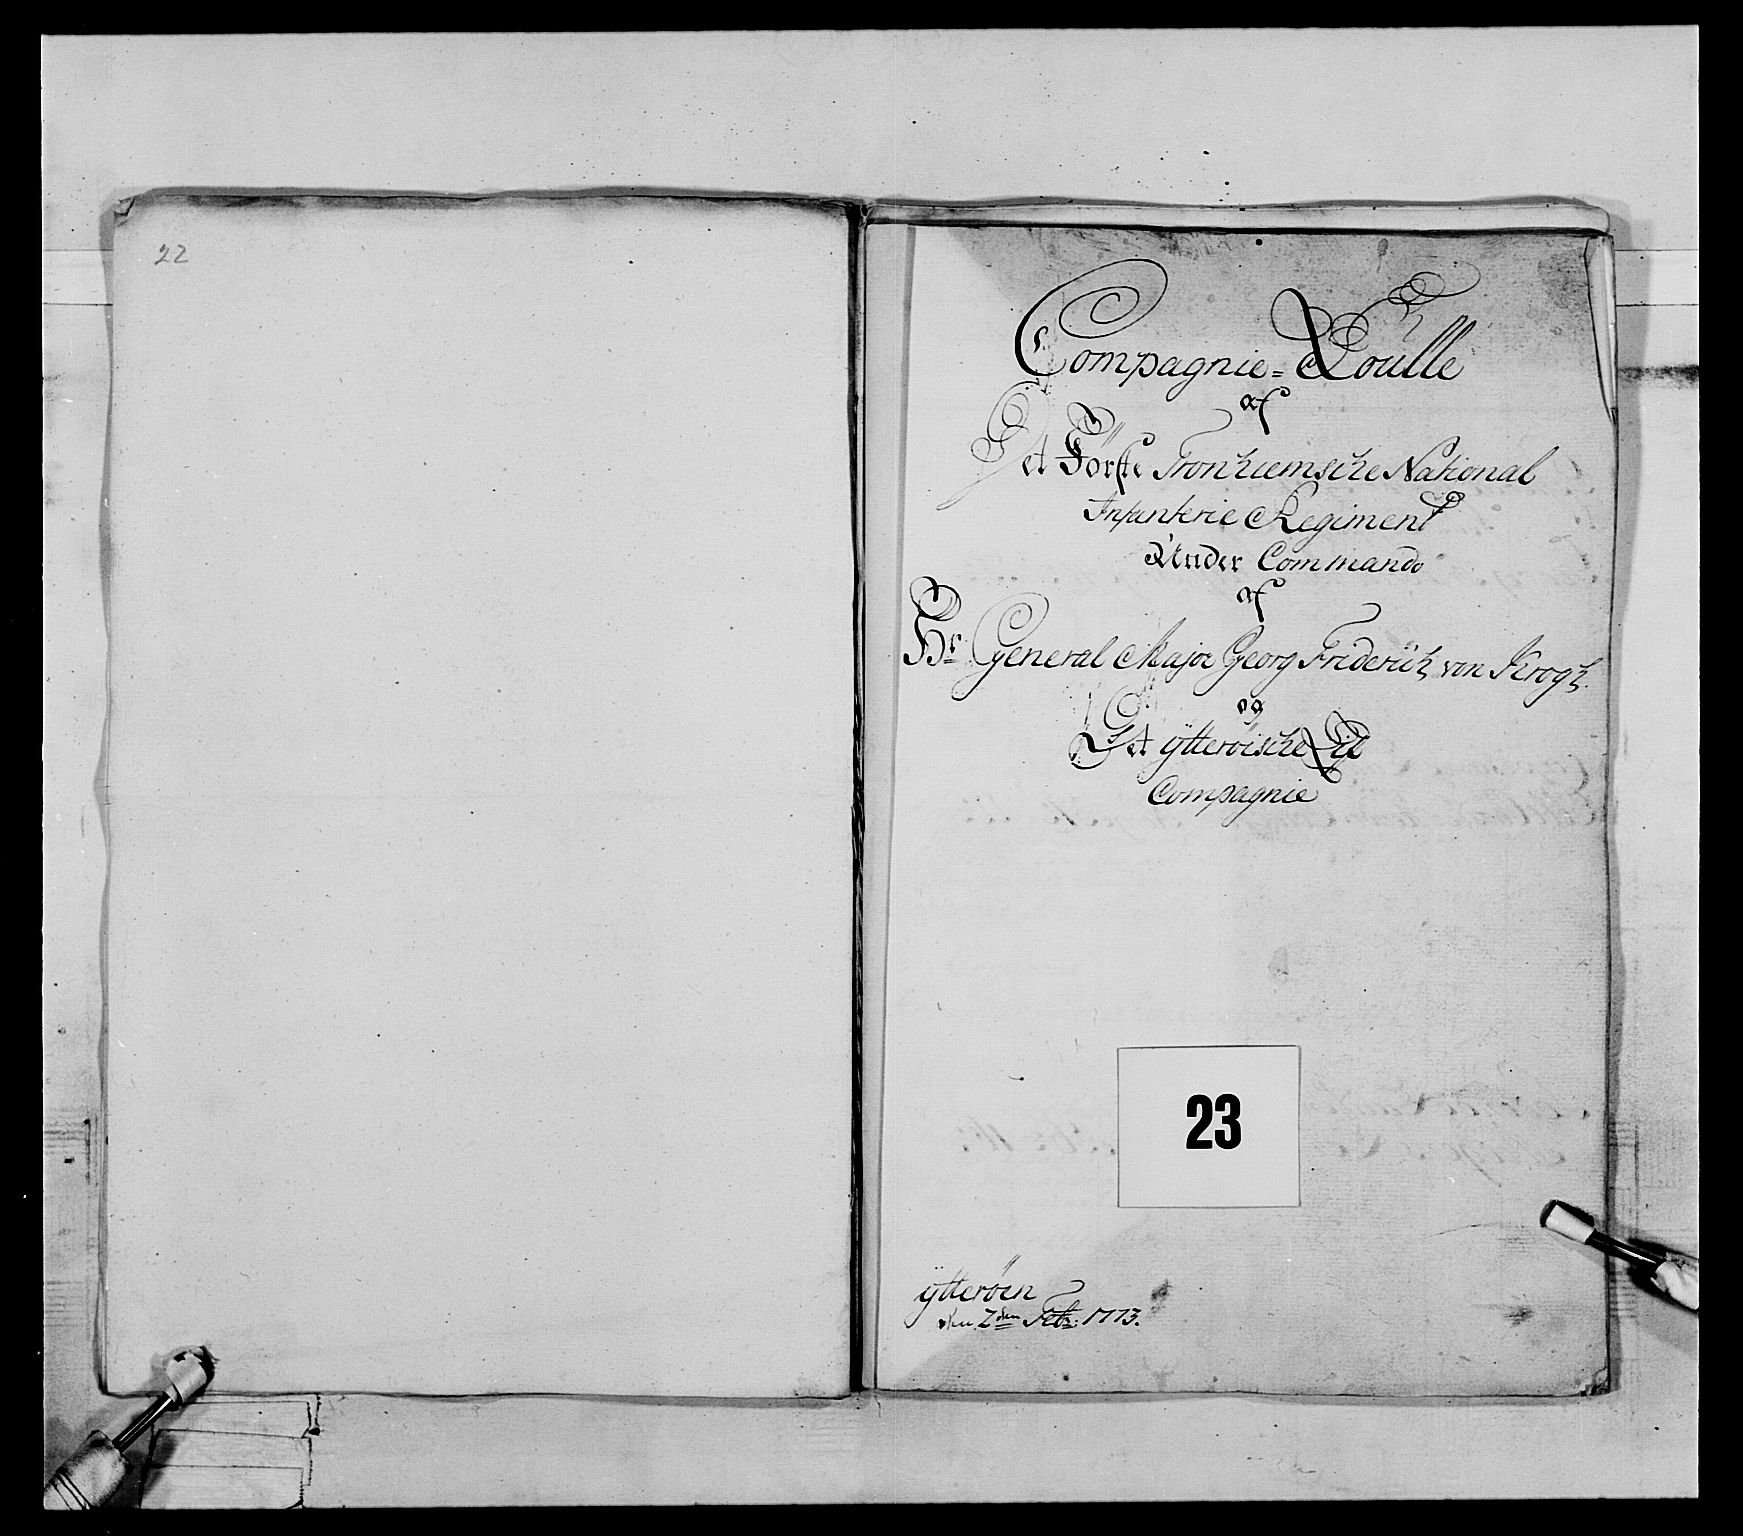 22
Compagnie= Roulle
af
Det Förste Tronhiemsche National
Infanterie Regiment
Under Commando
af
Hr General Major Georg Friderich von Krogh.
og
Det ÿtteröische Lif
Compagnie
23
ÿtteröen
den 2den Febr: 1773.